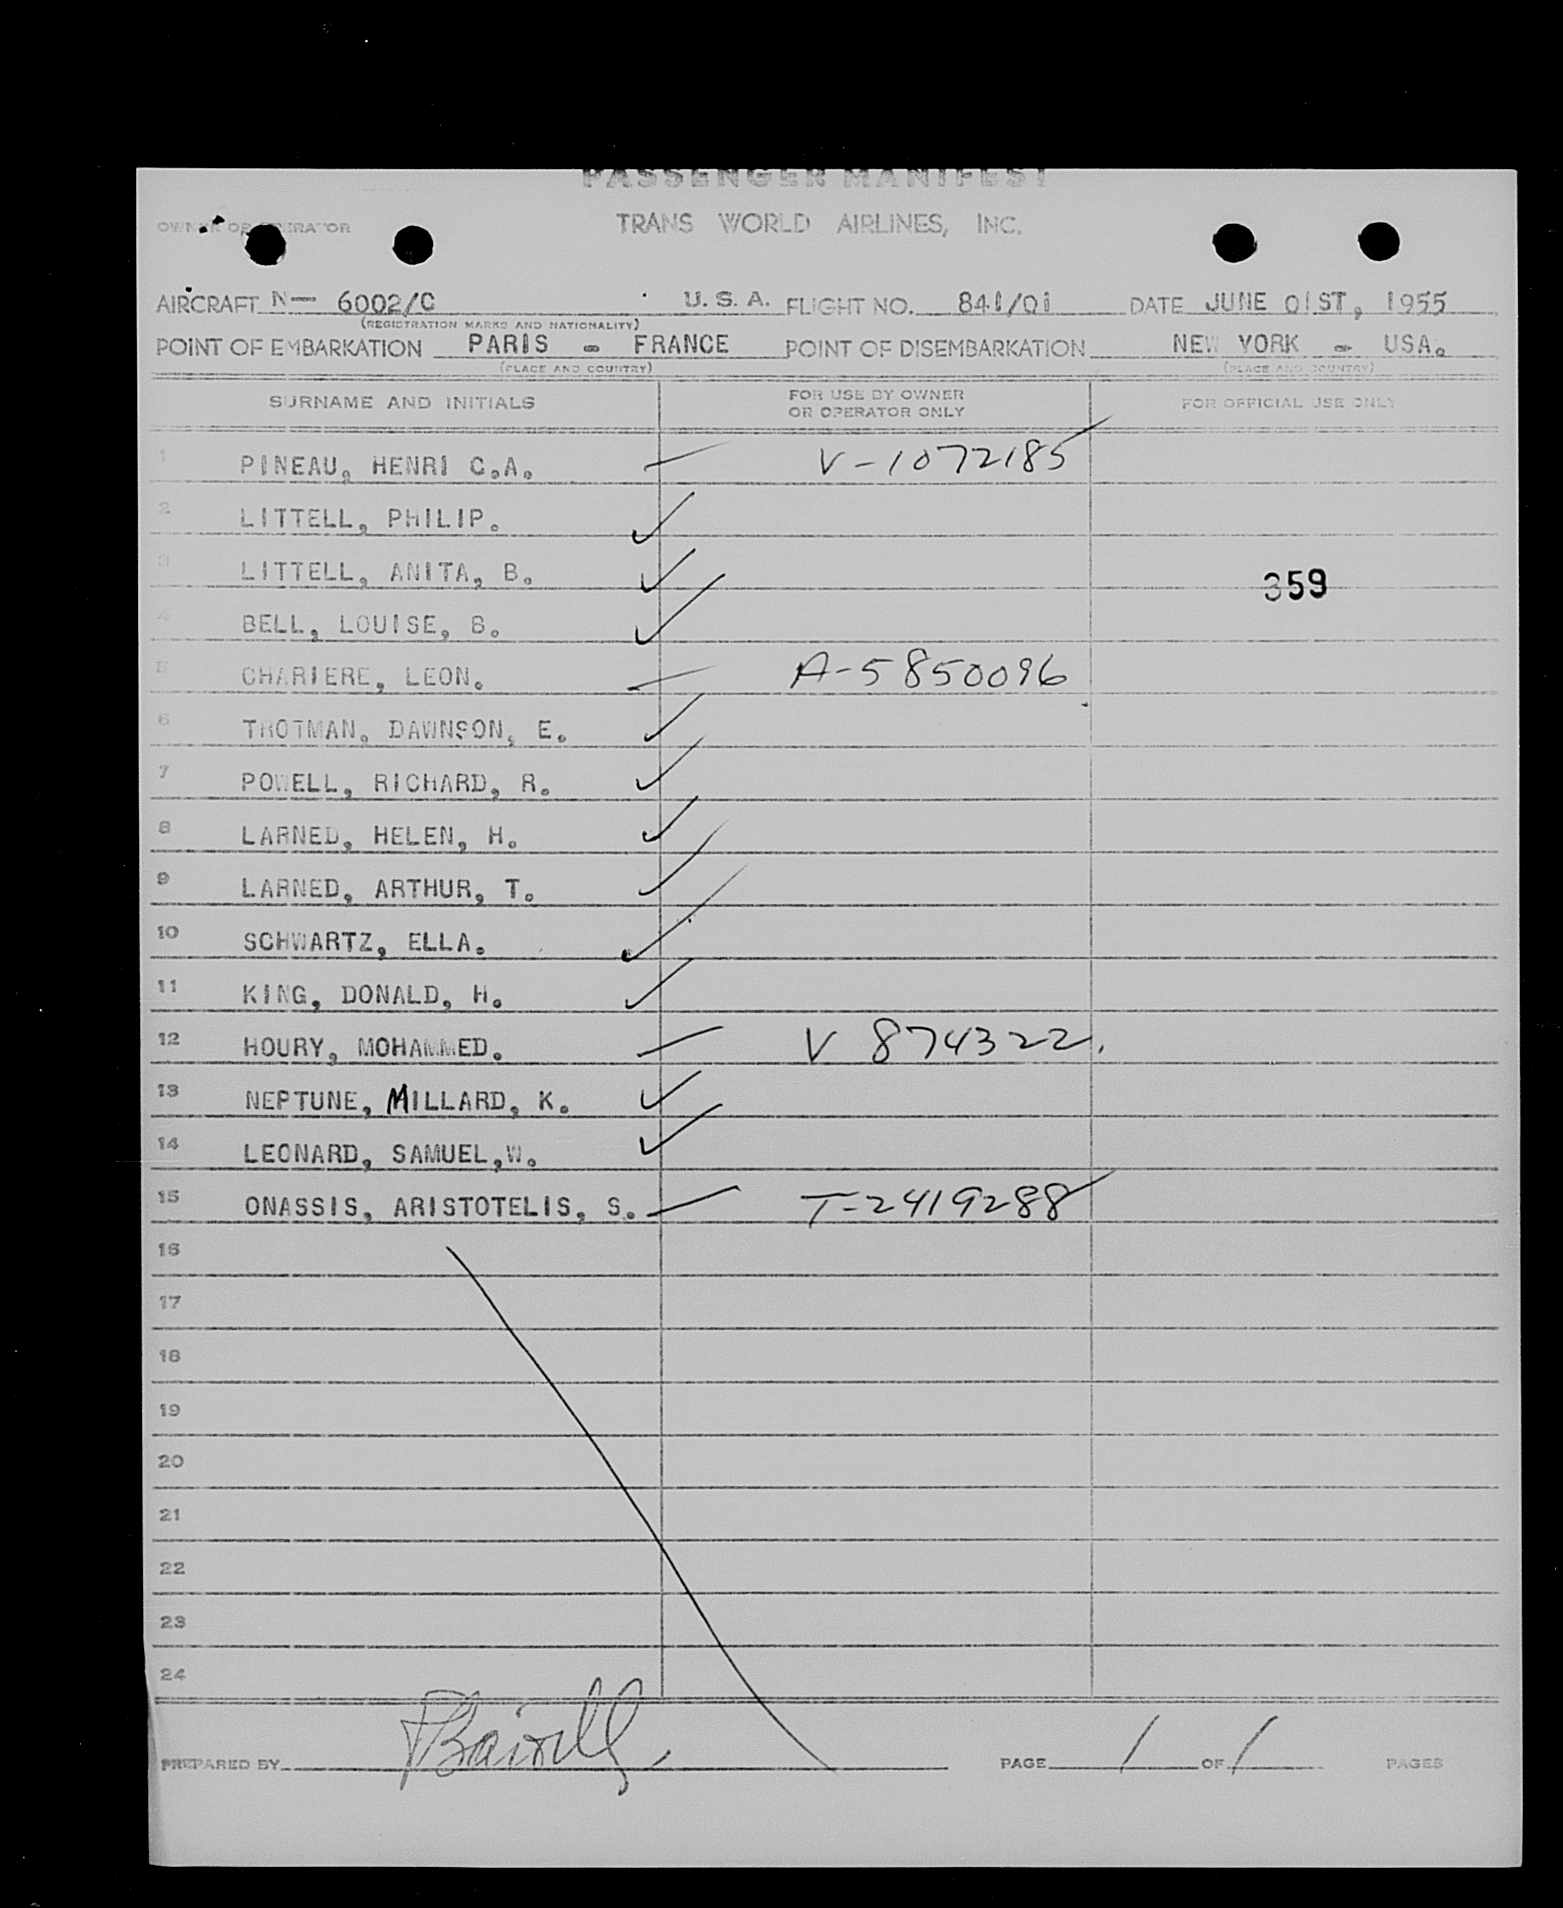 PASSENGER MANIFEST
OWNER OR OPERATOR TRANS WORLD AIRLINES, INC.
AIRCRAFT N- 6002/C U.S.A. FLIGHT NO. 841/01 DATE JUNE 01ST, 1955
(REGISTRATION MARKS AND NATIONALITY)
POINT OF EMBARKATION PARIS - FRANCE POINT OF DISEMBARKATION NEW YORK - USA.
(PLACE AND COUNTRY) (PLACE AND COUNTRY)
SURNAME AND INITIALS FOR USE BY OWNER OR OPERATOR ONLY FOR OFFICIAL USE ONLY
1 PINEAU, HENRI C.A. V-1072185
2 LITTELL, PHILIP.
3 LITTELL, ANITA, B.
359
4 BELL, LOUISE, B.
5 CHARIERE, LEON. A-5850096
6 TROTMAN, DAWNSON, E.
7 POWELL, RICHARD, R.
8 LARNED, HELEN, H.
9 LARNED, ARTHUR, T.
10 SCHWARTZ, ELLA.
11 KING, DONALD, H.
12 HOURY, MOHAMMED. V 874322.
13 NEPTUNE, MILLARD, K.
14 LEONARD, SAMUEL,W.
15 ONASSIS, ARISTOTELIS, S. T-2419288
16
17
18
19
20
21
22
23
24
PREPARED BY PAGE 1 OF 1 PAGES